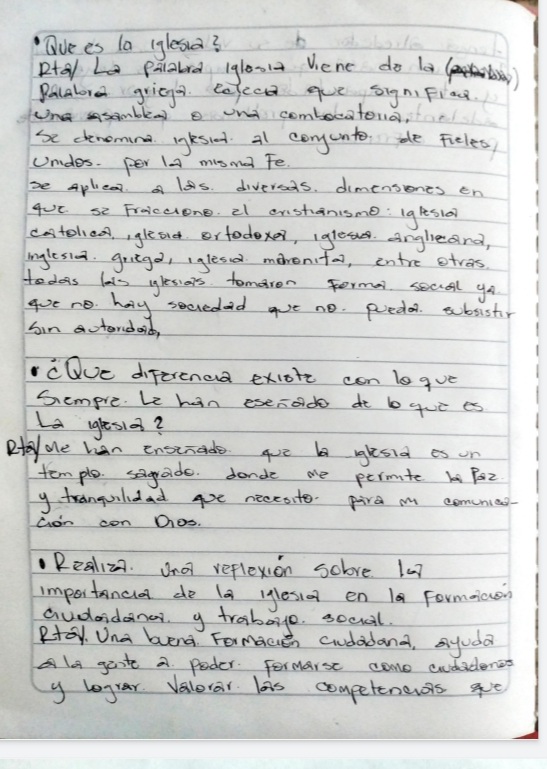 • Que es la iglesia?
Rta/ La palabra iglesia viene de la
palabra griega eclecia que significa
una asamblea o una combocatoria,
se denomina iglesia al conjunto de fieles
unidos. por la misma Fe.
se aplica a las. diversas. dimensiones en
que se fraccione. el cristianismo: iglesia
catolica, iglesia ortodoxa, iglesia. anglicana,
inglesia. griega, iglesia maronita, entre otras.
todas las iglesias tomaron forma social ya
que no. hay sociedad que no. pueda. subsistir
sin autoridad,
• ¿Que diferencia existe con lo que
siempre. Le han eseñado de lo que es
La iglesia?
Rta/ Me han enseñado. que la iglesia es un
templo. sagrado. donde me permite la Paz
y tranquilidad que necesito. para mi comunica-
ción con Dios.
• Realiza. una reflexión sobre la
importancia de la iglesia en la formación
ciudadana. y trabajo. social.
Rta/. Una buena. Formación ciudadana, ayuda
a la gente a poder. formarse como ciudadanos
y lograr. valorar. las competencias que